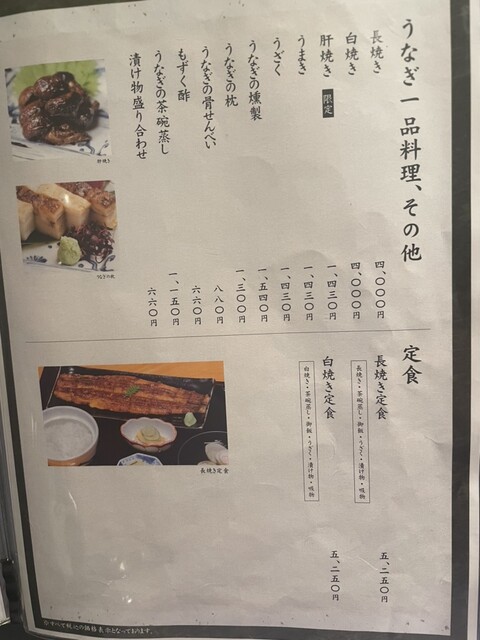 うなぎ一品料理、その他
長焼き 四、〇〇〇円
白焼き 四、〇〇〇円
肝焼き 限定 一、四三〇円
うまき 一、四三〇円
うざく 一、四三〇円
うなぎの燻製 一、五四〇円
うなぎの枕 一、三〇〇円
うなぎの骨せんべい 八八〇円
もずく酢 六六〇円
うなぎの茶碗蒸し 一、一五〇円
漬け物盛り合わせ 六六〇円
肝焼き
うなぎの枕
定食
長焼き定食 五、二五〇円
長焼き・茶碗蒸し・御飯・うざく・漬け物・吸物
白焼き定食 五、二五〇円
白焼き・茶碗蒸し・御飯・うざく・漬け物・吸物
長焼き定食
※すべて税込の価格表示となっております。